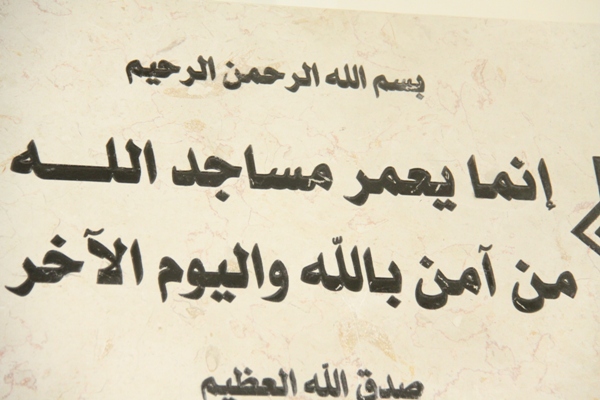 بسم الله الرحمن الرحيم
إنما يعمر مساجد اللـــه
من آمن بالله واليوم الآخر
صدق الله العظيم